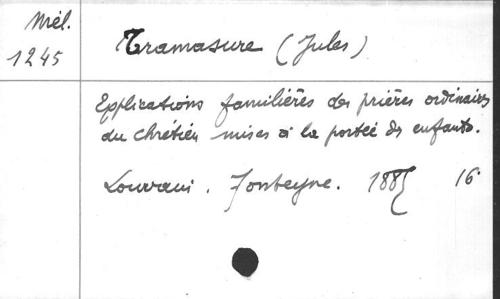 Mél.
1245
Tramasure (Jules)
Explications familières des prières ordinaires
du chrétien mises à la portée des enfants.
Louvain. Fonteyne. 1885 16°